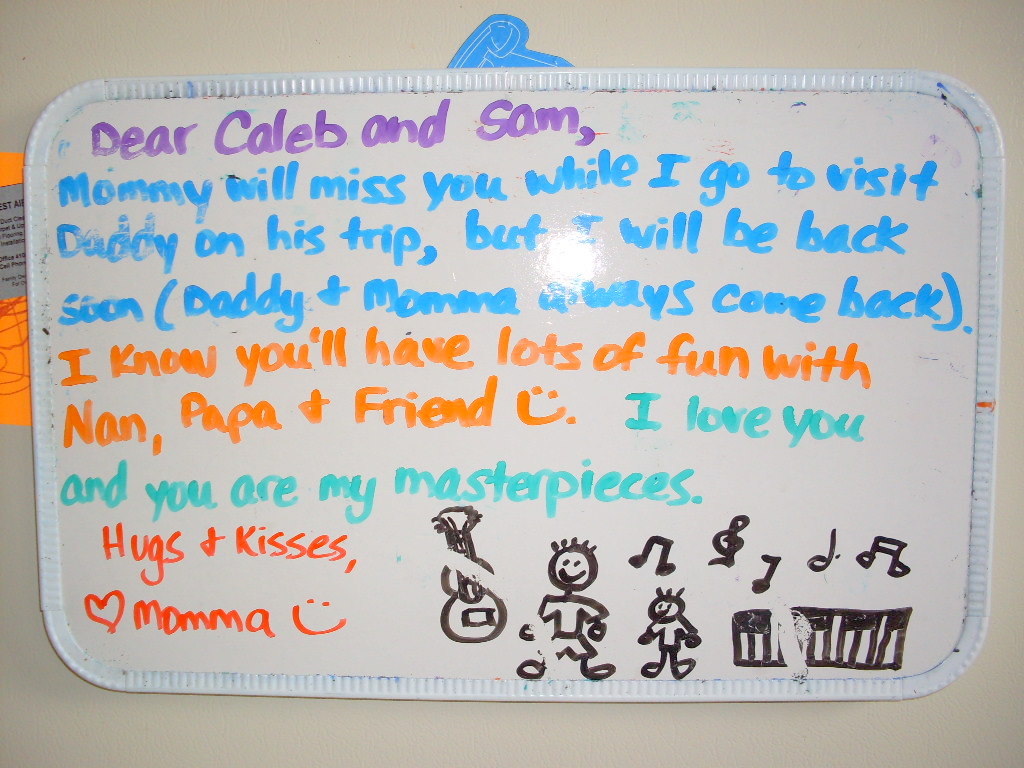 Dear Caleb and Sam,
Mommy will miss you while I go to visit
Daddy on his trip, but I will be back
soon (Daddy + Momma always come back).
I know you'll have lots of fun with
Nan, Papa + Friend
I love you
and you are my masterpieces.
Hugs + Kisses,
Momma